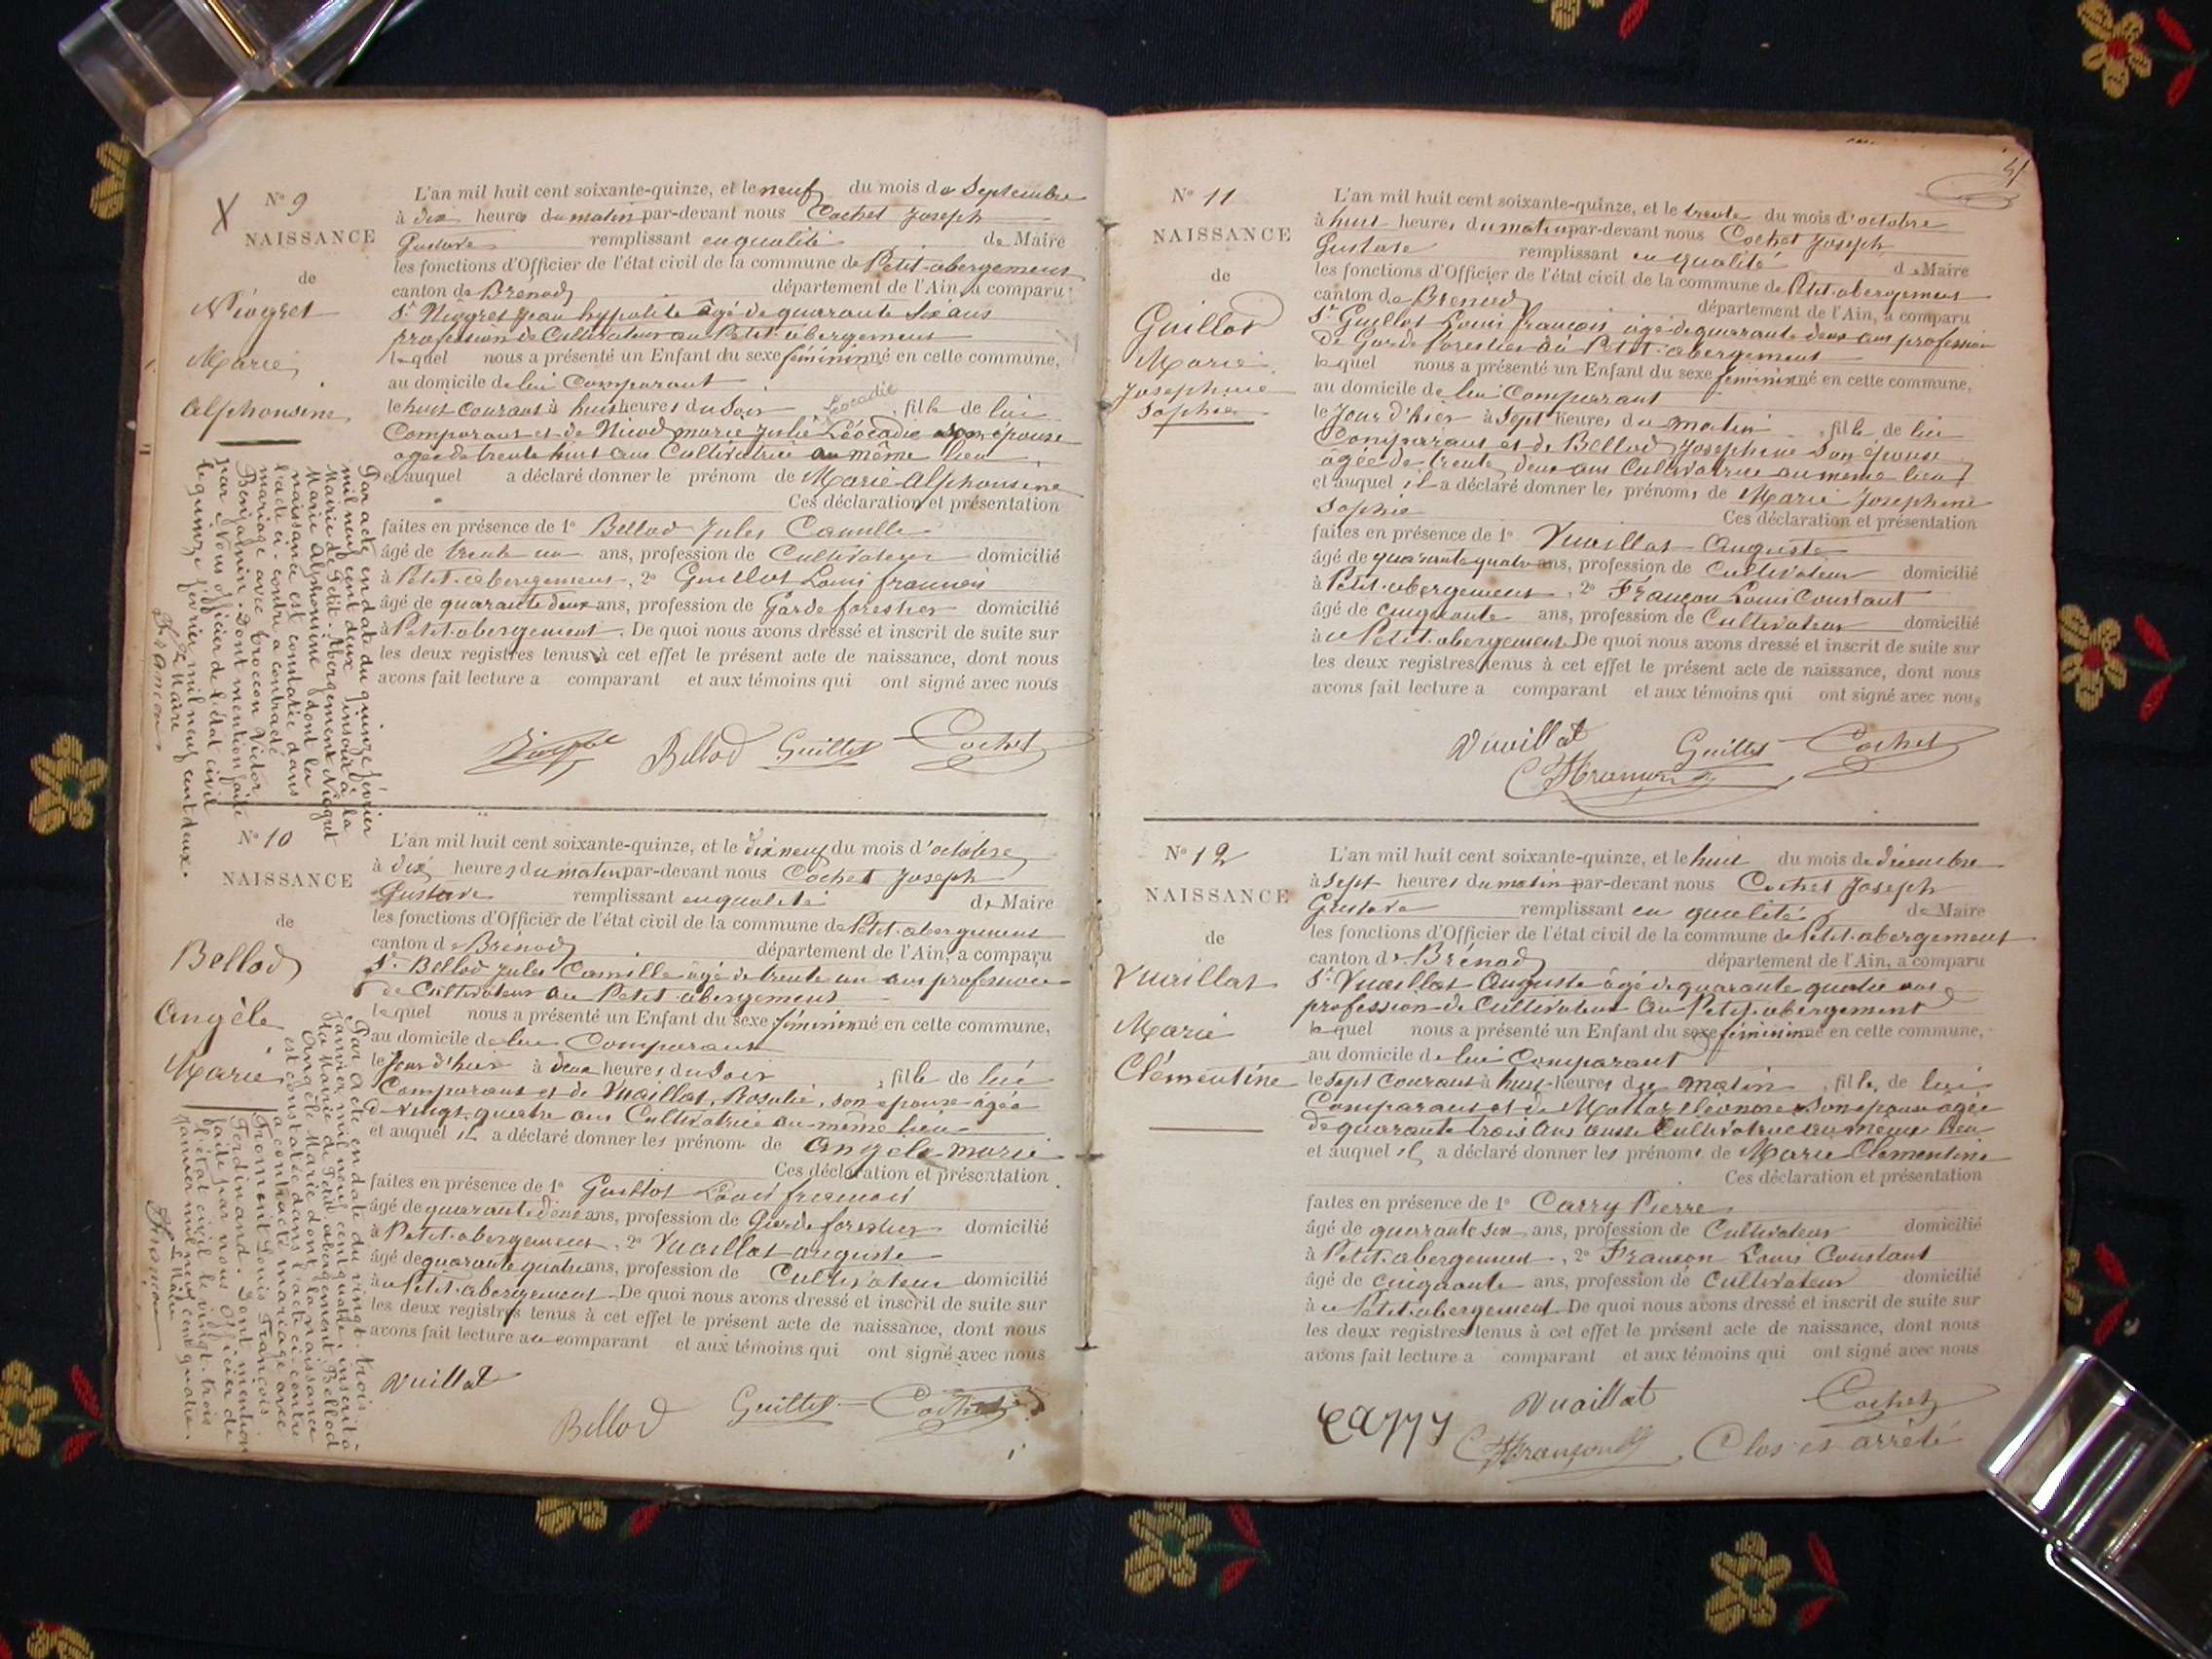 N° 9
NAISSANCE
de
Niogret
Marie
Alphonsine
L'an mil huit cent soixante-quinze, et le neuf du mois de Septembre
à dix heures du matin par-devant nous Cochet Joseph
Gustave remplissant en qualité de Maire
les fonctions d'Officier de l'état civil de la commune de Petit-abergement
canton de Brenod département de l'Ain, a comparu
Sr Niogret Jean hypolite âgé de quarante six ans
profession de Cultivateur au Petit-abergement
lequel nous a présenté un Enfant du sexe féminin né en cette commune,
au domicile de lui Comparant
le huit courant à huit heures du Soir, fille de lui
Léocadie
Comparant et de Nicod marie Julie Léocadie son épouse
agée de trente huit ans Cultivatrice au même lieu
et auquel a déclaré donner le prénom de Marie Alphonsine
Ces déclaration et présentation
faites en présence de 1° Bellod Jules Camille
âgé de trente un ans, profession de Cultivateur domicilié
à Petit-abergement, 2° Guillot Louis françois
âgé de quarante deux ans, profession de Garde forestier domicilié
à Petit-abergement. De quoi nous avons dressé et inscrit de suite sur
les deux registres tenus à cet effet le présent acte de naissance, dont nous
avons fait lecture a comparant et aux témoins qui ont signé avec nous
Bellod Guillot Cochet
Par acte en date du quinze février
mil neuf cent deux inscrit à la
Mairie de Petit-Abergement Niogret
Marie Alphonsine dont la
naissance est constatée dans
l'acte ci-contre a contracté
mariage avec Broccon Victor
Benjamin. Dont mention faite
par Nous officier de l'état civil
le quinze février mil neuf cent deux.
Le Maire
Françon
N° 10
NAISSANCE
de
Bellod
Angèle
Marie
L'an mil huit cent soixante-quinze, et le dix neuf du mois d'octobre
à dix heures du matin par-devant nous Cochet Joseph
Gustave remplissant en qualité de Maire
les fonctions d'Officier de l'état civil de la commune de Petit-abergement
canton de Brenod département de l'Ain, a comparu
Sr Bellod Jules Camille âgé de trente un ans profession
de Cultivateur au Petit abergement
lequel nous a présenté un Enfant du sexe féminin né en cette commune,
au domicile de lui Comparant
le Jour d'hier à deux heures du Soir, fille de lui
Comparant et de Vuaillat, Rosalie, son épouse âgée
de vingt quatre ans Cultivatrice au même lieu
et auquel il a déclaré donner les prénom de Angele marie
Ces déclaration et présentation
faites en présence de 1° Guillot Louis françois
âgé de quarante deux ans, profession de Garde forestier domicilié
à Petit-abergement, 2° Vuaillat auguste
âgé de quarante quatre ans, profession de Cultivateur domicilié
à u Petit-abergement De quoi nous avons dressé et inscrit de suite sur
les deux registres tenus à cet effet le présent acte de naissance, dont nous
avons fait lecture au comparant et aux témoins qui ont signé avec nous
Vuillat
Bellod Guillot Cochet
Par acte en date du vingt-trois
Janvier mil neuf cent quatre, inscrit à
la Mairie de Petit abergement Bellod
Angèle Marie dont la naissance
est constatée dans l'acte ci-contre
a contracté mariage avec
Fromont Louis François
Ferdinand. Dont mention
faite par nous Officier de
l'état civil le vingt-trois
Janvier mil neuf cent quatre.
Le Maire
Françon
N° 11
NAISSANCE
de
Guillot
Marie
Josephine
Sophie
L'an mil huit cent soixante-quinze, et le trente du mois d'octobre
à huit heures du matin par-devant nous Cochet Joseph
Gustave remplissant en qualité de Maire
les fonctions d'Officier de l'état civil de la commune de Petit-abergement
canton de Brenod département de l'Ain, a comparu
Sr Guillot Louis françois âgé de quarante deux ans profession
de Garde forestier au Petit-abergement
lequel nous a présenté un Enfant du sexe féminin né en cette commune,
au domicile de lui Comparant
le Jour d'hier à Sept heures du matin, fille de lui
Comparant et de Bellod Josephine Son épouse
âgée de trente deux ans Cultivatrice au même lieu
et auquel il a déclaré donner les prénoms de Marie Josephine
Sophie Ces déclaration et présentation
faites en présence de 1° Vuaillat Auguste
âgé de quarante quatre ans, profession de Cultivateur domicilié
à Petit-abergement, 2° Françon Louis Constant
âgé de cinquante ans, profession de Cultivateur domicilié
à u Petit-abergement De quoi nous avons dressé et inscrit de suite sur
les deux registres tenus à cet effet le présent acte de naissance, dont nous
avons fait lecture a comparant et aux témoins qui ont signé avec nous
Vuaillat Guillot Cochet
Françon
N° 12
NAISSANCE
de
Vuaillat
Marie
Clémentine
L'an mil huit cent soixante-quinze, et le huit du mois de décembre
à Sept heures du matin par-devant nous Cochet Joseph
Gustave remplissant en qualité de Maire
les fonctions d'Officier de l'état civil de la commune de Petit-abergement
canton de Brénod département de l'Ain, a comparu
Sr Vuaillat Auguste âgé de quarante quatre ans
profession de Cultivateur au Petit-abergement
lequel nous a présenté un Enfant du sexe féminin né en cette commune,
au domicile de lui Comparant
le sept courant à huit heures du matin, fille, de lui
Comparant et de eléonore Son épouse âgée
de quarante trois ans aussi Cultivatrice au même lieu
et auquel il a déclaré donner les prénoms de Marie Clémentine
Ces déclaration et présentation
faites en présence de 1° Carry Pierre
âgé de quarante six ans, profession de Cultivateur domicilié
à Petit-abergement, 2° Françon Louis Constant
âgé de cinquante ans, profession de Cultivateur domicilié
à u Petit-abergement De quoi nous avons dressé et inscrit de suite sur
les deux registres tenus à cet effet le présent acte de naissance, dont nous
avons fait lecture a comparant et aux témoins qui ont signé avec nous
Carry Vuaillat Cochet
Françon Clos et arrêté